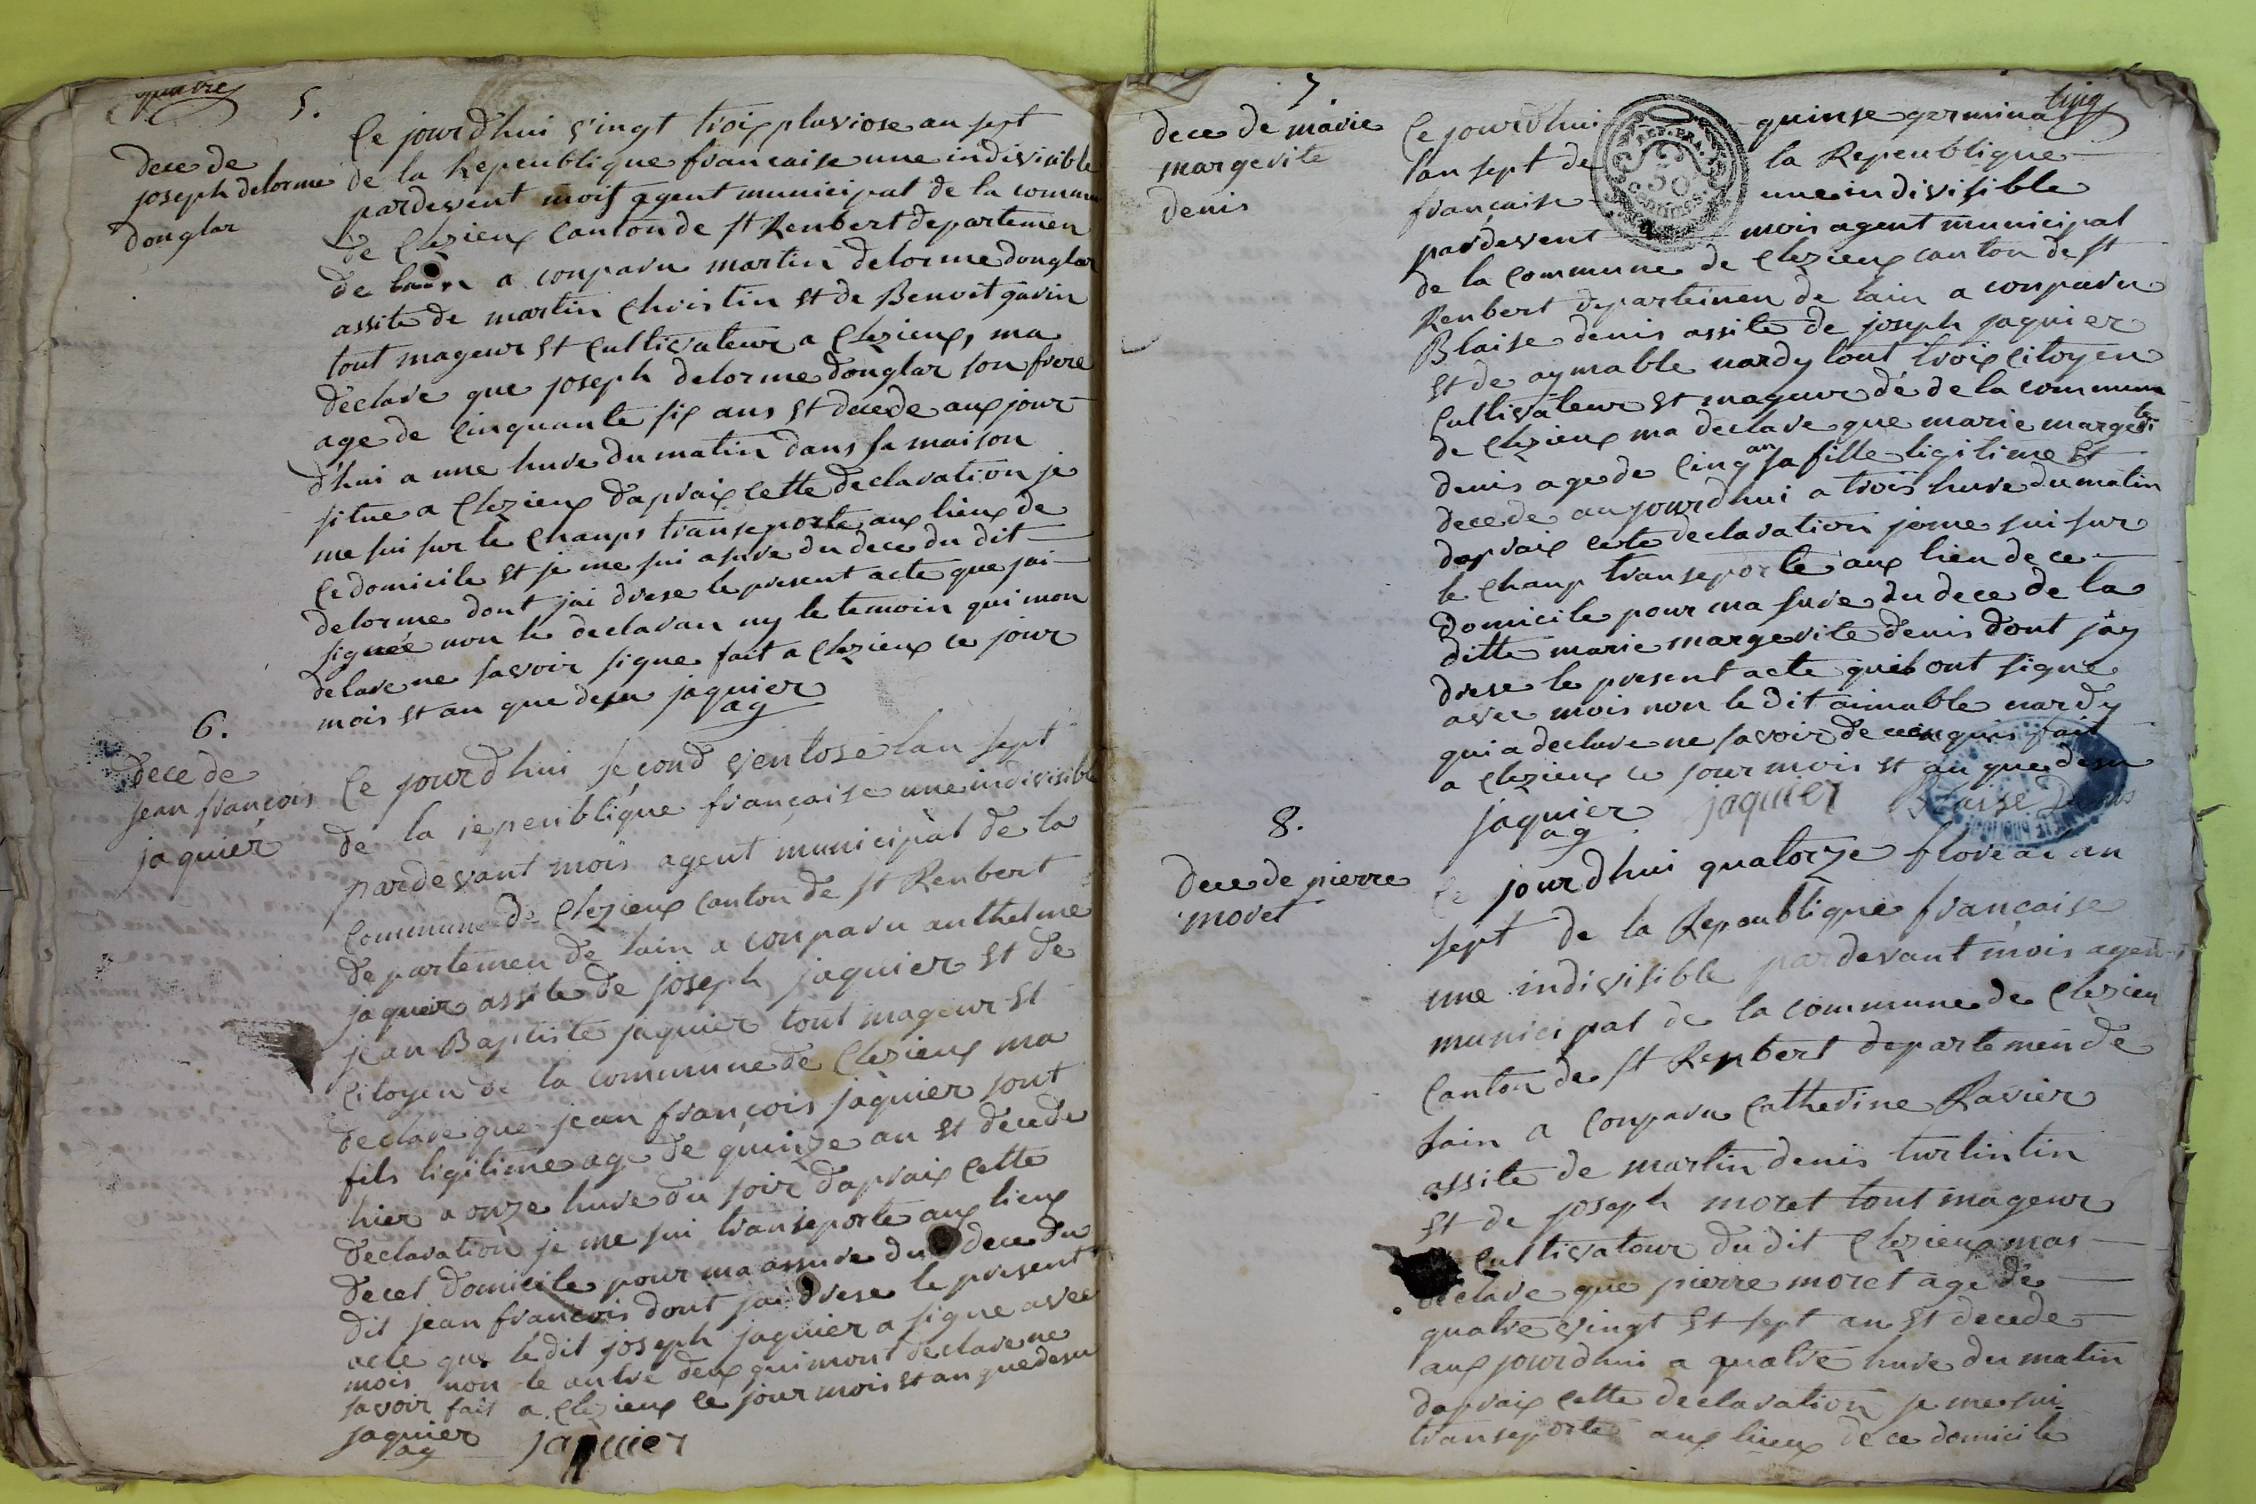 quatre
5.
dece de
joseph delorme
donglar
Ce jourd'hui vingt troix pluviose an sept
de la Repeublique francaise une indivisible
pardevent mois agent municipal de la commune
de Clezieux canton de st Renbert departemen
de lain a conparu martin delorme donglar
assite de martin Christin et de Benoit gavin
tout mageur et cultivateur a Clezieux, ma
declare que joseph delorme donglar son frere
age de cinquante six ans et decede aux jour
d'hui a une hure du matin dans sa maison
situe a Clezieux dapraix cette declaration je
me sui sur le champs transeporte aux lieux de
ce domicile et je me sui asure du dece du dit
delorme dont jai drese le present acte que jai
signee non le declaran ny le temoin qui mon
delare ne savoir signe fait a Clezieux ce jour
mois et an que desu jaquier
ag
6.
dece de
jean francois
jaquier
Ce jourd'hui second ventose lan sept
de la repeublique francaise une indivisible
pardevant mois agent municipal de la
commune de Clezieux canton de st Renbert
departemen de lain a conparu anthelme
jaquier assite de joseph jaquier et de
jean Baptiste jaquier tout mageur et
citoyen de la commune de Clezieux ma
declare que jean francois jaquier sont
fils ligitime age de quinze an et decede
hier a onze hure du soir dapraix cette
declaration je me sui transeporte aux lieux
decet domicile pour ma assure du dece du
dit jean francois dont jai drese le present
acte que ledit joseph jaquier a signe avec
mois non le autre deux qui mont declare ne
savoir fait a Clezieux ce jour mois et an que desu
jaquier jaquier
ag
cinq
7.
dece de marie
margerite
denis
Ce jourd'hui quinse germinal
lan sept de la Repeublique
francaise une indivisible
pardevent mois agent municipal
REP. FRA.
50
centimes
de la commune de Clezieux canton de st
Renbert departemen de lain a conparu
Blaise denis assite de joseph jaquier
et de aymable nardy tout troix citoyen
cultivateur et mageur de de la commune
de Clezieux ma declare que marie margerite
denis age de cinq an sa fille ligitime et
decede aujourd'hui a trois hure du matin
dapraix cete declaration je me sui sur
le champ transeporte aux lien de ce
domicile pour ma sure du dece de la
ditte marie margerite denis dont jay
drese le present acte quil ont signe
avec mois non le dit aimable nardy
qui a declare ne savoir de ce enquis fait
a Clezieux ce jour mois et an que desu
jaquier jaquier Blaise Denis
ag
8.
dece de pierre
moret
Ce jourd'hui quatorze floreal an
sept de la Repeublique francaise
une indivisible pardevant mois agent
municipal de la commune de Clezieu
canton de st Renbert departemen de
lain a conparu catherine Ravier
assite de martin denis turlintin
et de joseph moret tout mageur
et cultivatour du dit Clezieux mas
declare que pierre moret age de
quatre vingt et sept an et decede
aux jourd'hui a quatre hure du matin
dapraix cette declaration je me sui
transeporte aux lieux de ce domicile